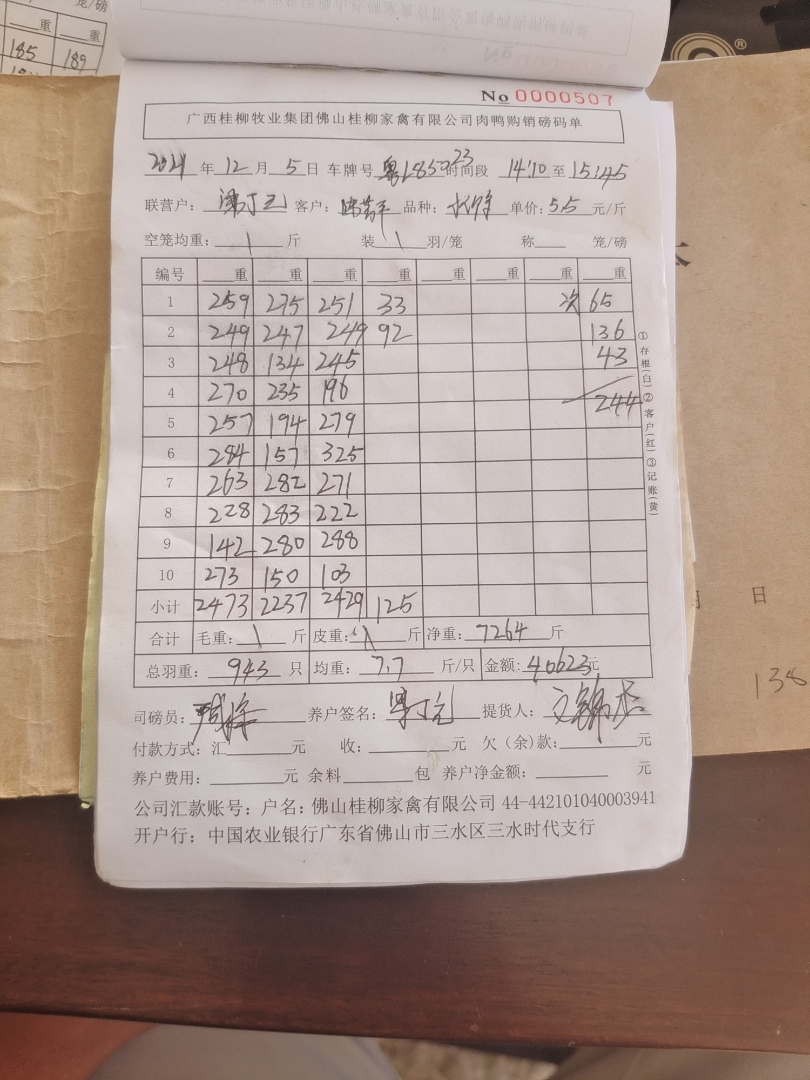 185 189
重 重
No 0000507
广西桂柳牧业集团佛山桂柳家禽有限公司肉鸭购销磅码单
2021 年 12 月 5 日 车牌号 粤L85023 时间段 14:10 至 15:45
联营户: 客户: 品种: 单价: 5.5 元/斤
空笼均重: \ 斤 装 \ 羽/笼 称 笼/磅
编号 重 重 重 重 重 重 重 重
1 259 275 251 33 次 65
2 249 247 249 92 136
3 248 134 245 43
4 270 235 196 244
5 257 194 279
6 284 157 325
7 263 282 271
8 228 283 222
9 142 280 288
10 273 150 103
小计 2473 2237 2429 125
合计 毛重: \ 斤 皮重: \ 斤 净重: 7264 斤
总羽重: 943 只 均重: 7.7 斤/只 金额: 40623元
司磅员: 养户签名: 提货人:
付款方式: 汇 元 收: 元 欠(余)款: 元
养户费用: 元 余料 包 养户净金额: 元
公司汇款账号: 户名: 佛山桂柳家禽有限公司 44-442101040003941
开户行: 中国农业银行广东省佛山市三水区三水时代支行
①存根(白)②客户(红)③记账(黄)
日
138